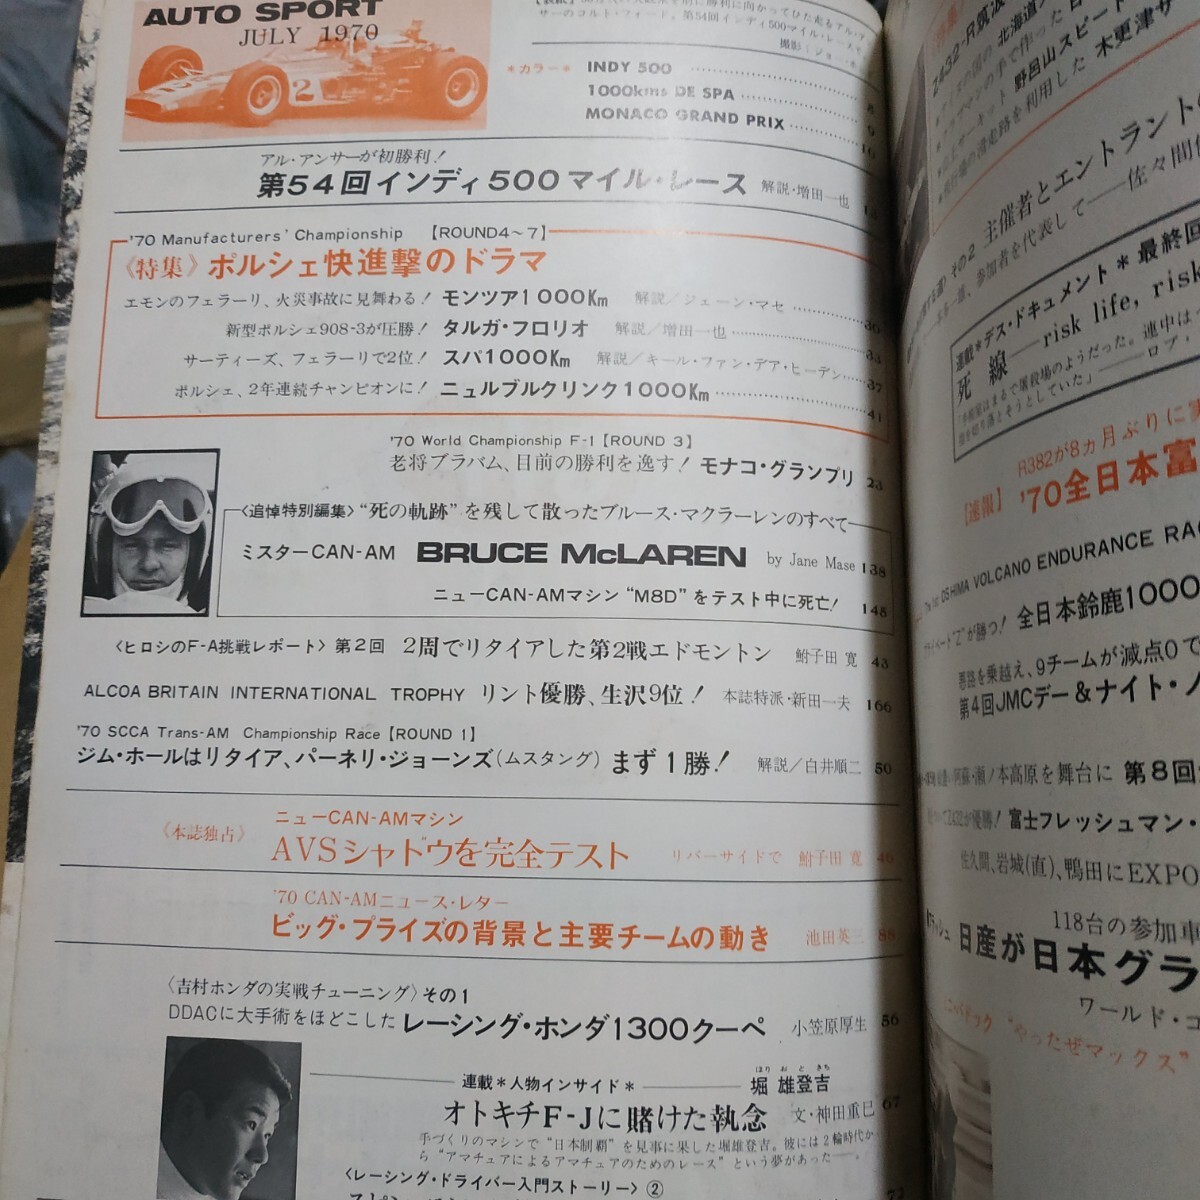 AUTO SPORT
JULY 1970
サーのコルト・フォード。第54回インディ500マイル・レースで
＊カラー＊
INDY 500 8
1000kms DE SPA 9
MONACO GRAND PRIX 10
アル・アンサーが初勝利！
第54回インディ500マイル・レース 解説・増田一也
'70 Manufacturers' Championship 【ROUND4〜7】
《特集》ポルシェ快進撃のドラマ
エモンのフェラーリ、火災事故に見舞わる！ モンツア1000Km 解説／ジェーン・マセ 30
新型ポルシェ908-3が圧勝！ タルガ・フロリオ 解説／増田一也 35
サーティーズ、フェラーリで2位！ スパ1000Km 解説／キール・ファン・デア・ヒーデン 37
ポルシェ、2年連続チャンピオンに！ ニュルブルクリンク1000Km 41
'70 World Championship F-1【ROUND 3】
老将ブラバム、目前の勝利を逸す！ モナコ・グランプリ 23
〈追悼特別編集〉“死の軌跡”を残して散ったブルース・マクラーレンのすべて
ミスターCAN-AM BRUCE McLAREN by Jane Mase 138
ニューCAN-AMマシン“M8D”をテスト中に死亡！ 145
〈ヒロシのF-A挑戦レポート〉第2回 2周でリタイアした第2戦エドモントン 鮒子田 寛 43
ALCOA BRITAIN INTERNATIONAL TROPHY リント優勝、生沢9位！ 本誌特派・新田一夫 166
'70 SCCA Trans-AM Championship Race【ROUND 1】
ジム・ホールはリタイア、パーネリ・ジョーンズ（ムスタング）まず1勝！ 解説／白井順二 50
ニューCAN-AMマシン
《本誌独占》 AVSシャドウを完全テスト リバーサイドで 鮒子田 寛 46
'70 CAN-AMニュース・レター
ビッグ・プライズの背景と主要チームの動き 池田英三 88
〈吉村ホンダの実戦チューニング〉その1
DDACに大手術をほどこした レーシング・ホンダ1300クーペ 小笠原厚生 56
連載＊人物インサイド＊ 堀 雄登吉
ほり おときち
オトキチF-Jに賭けた執念 文・神田重巳 67
手づくりのマシンで“日本制覇”を見事に果した堀雄登吉。彼には2輪時代か
ら“アマチュアによるアマチュアのためのレース”という夢があった—。
〈レーシング・ドライバー入門ストーリー〉②
Z432-R筑波
北海道
野呂山スピード
木更津サ
主催者とエントラントの
その2
参加者を代表して——佐々間
連載＊デス・ドキュメント＊最終回
死線——risk life, risk
「手術室はまるで屠殺場のようだった。連中は
R382が8ヵ月ぶりに
【速報】 '70全日本富
The 1st OSHIMA VOLCANO ENDURANCE RAC
プライベート“Z”が勝つ！ 全日本鈴鹿1000
悪路を乗越え、9チームが減点0で
第4回JMCデー&ナイト・
阿蘇・瀬ノ本高原を舞台に 第8回
Z432が優勝！ 富士フレッシュマン・
佐久間、岩城(直)、鴨田にEXPO
118台の参加車
日産が日本グラ
ワールド・コ
“やったぜマックス”